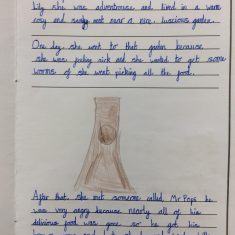 Lily she was adventurous and lived in a warm
cosy and sandy nest near a nice, luscious garden.
One day, she went to that garden because
she was feeling sick and she wanted to get some
worms of she went picking all the food.
After that, she met someone called Mr Pops he
was very angry because nearly all of his
delicious food was gone so he got his